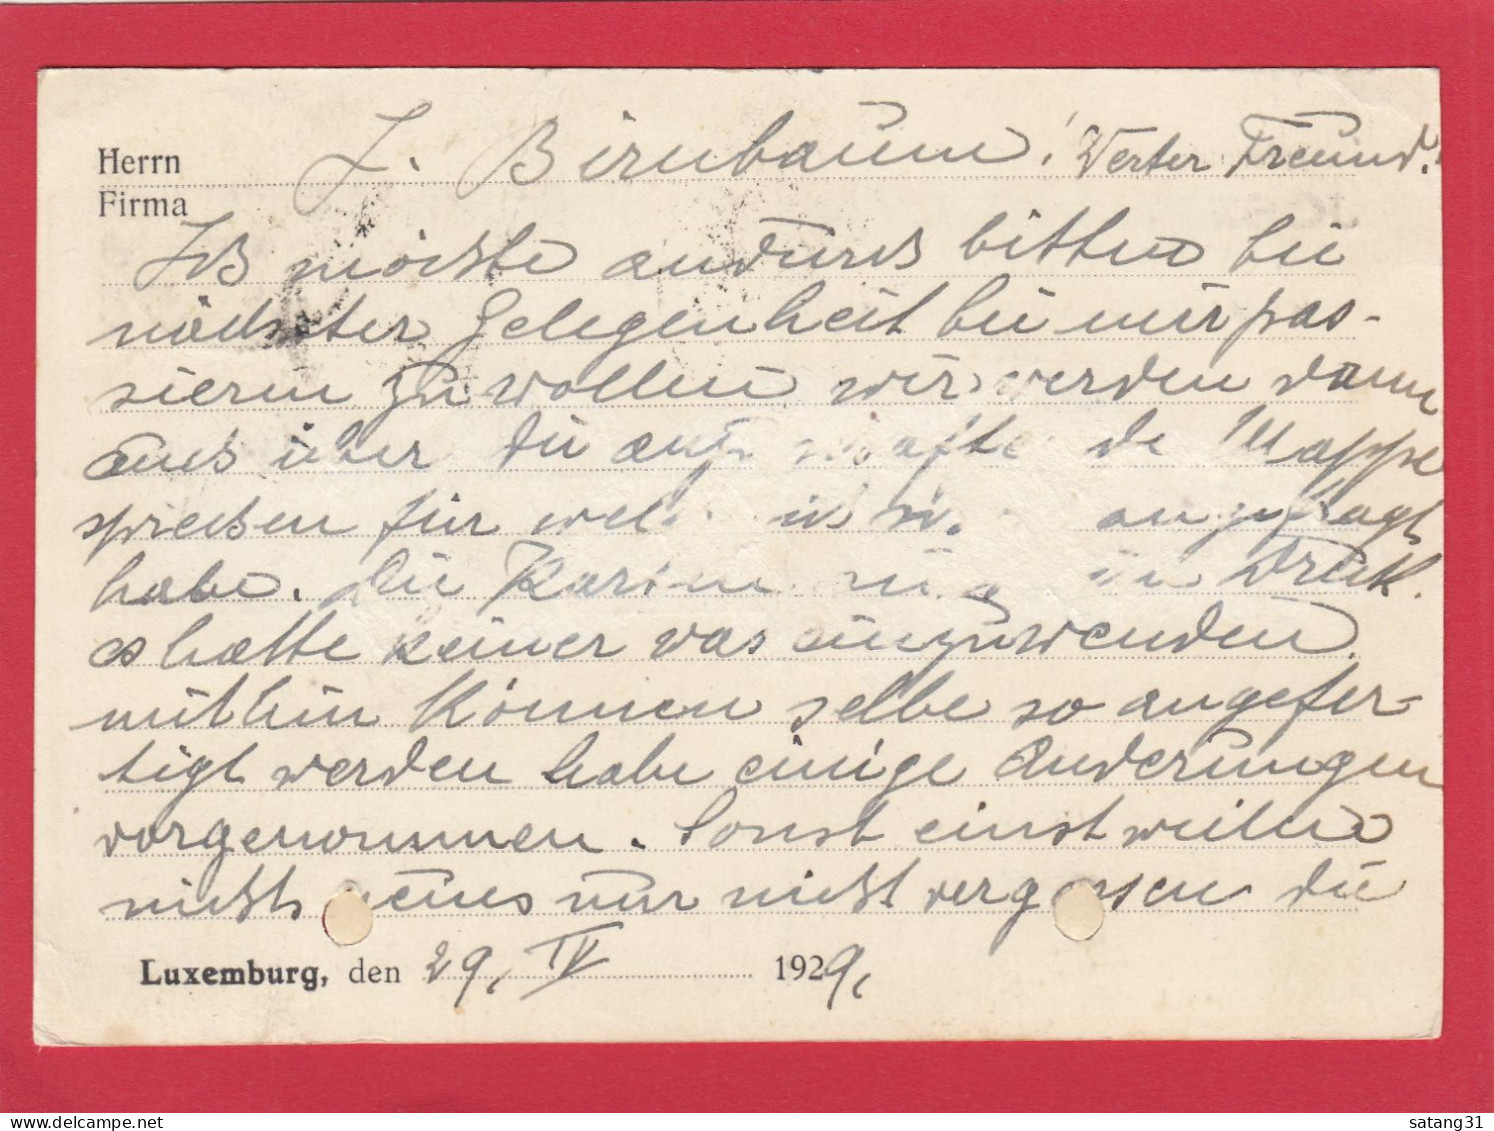 Herrn J. Birnbaum! Werter Freund!
Firma
Ich möchte andurch bitten bei
nächster Gelegenheit bei mir pas-
sieren zu wollen wir werden dann
auch über die de Mappe
sprechen für angefragt
habe. Die in Druck.
es hatte keiner was einzuwenden
mithin können selbe so angefer-
tigt werden habe einige Änderungen
vorgenommen. Sonst einstweilen
nichts neues nur nicht vergessen die
Luxemburg, den 29. IV 1929.
satang31